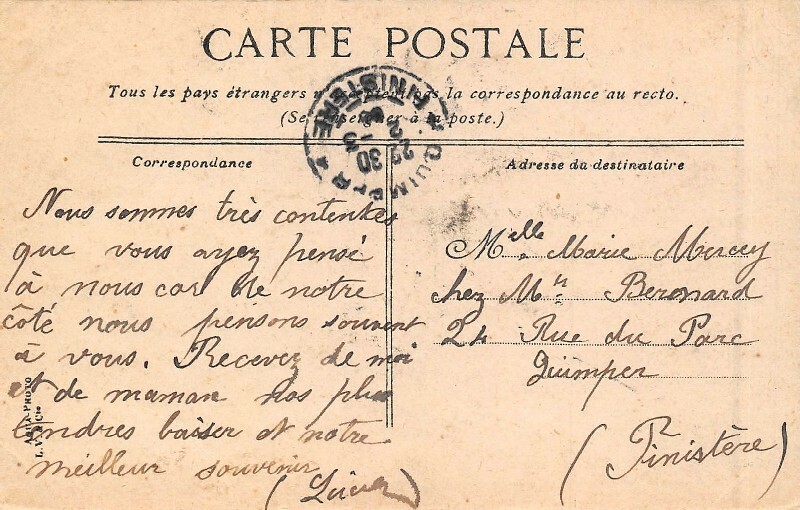 CARTE POSTALE
Tous les pays étrangers n'acceptent pas la correspondance au recto.
(Se renseigner à la poste.)
QUIMPER FINISTERE
Correspondance
Nous sommes très contentes
que vous ayez pensé
à nous car de notre
côté nous pensons souvent
à vous. Recevez de moi
et de maman nos plus
tendres baiser et notre
meilleur souvenir
Adresse du destinataire
Melle Marie Mercey
chez Mr Beronard
24 Rue du Parc
Quimper
(Finistère)
L.V. & Cie